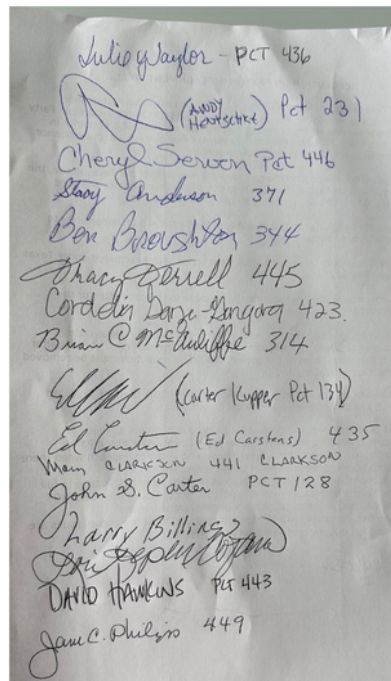 Julie y Taylor - PCT 436
(ANDY HENTSCHKE) Pct 231
Cheryl Serven Pct 446
Stacy Anderson 371
Ben Broughton 344
Tracy Terrell 445
Cordelia 423.
Brian C McAuliffe 314
(Carter Kupper Pct 134)
Ed (Ed Carstens) 435
Mary CLARKSON 441 CLARKSON
John S. Carter PCT 128
Larry Billings
DAVID HAWKINS PCT 443
Jane C. Philips 449